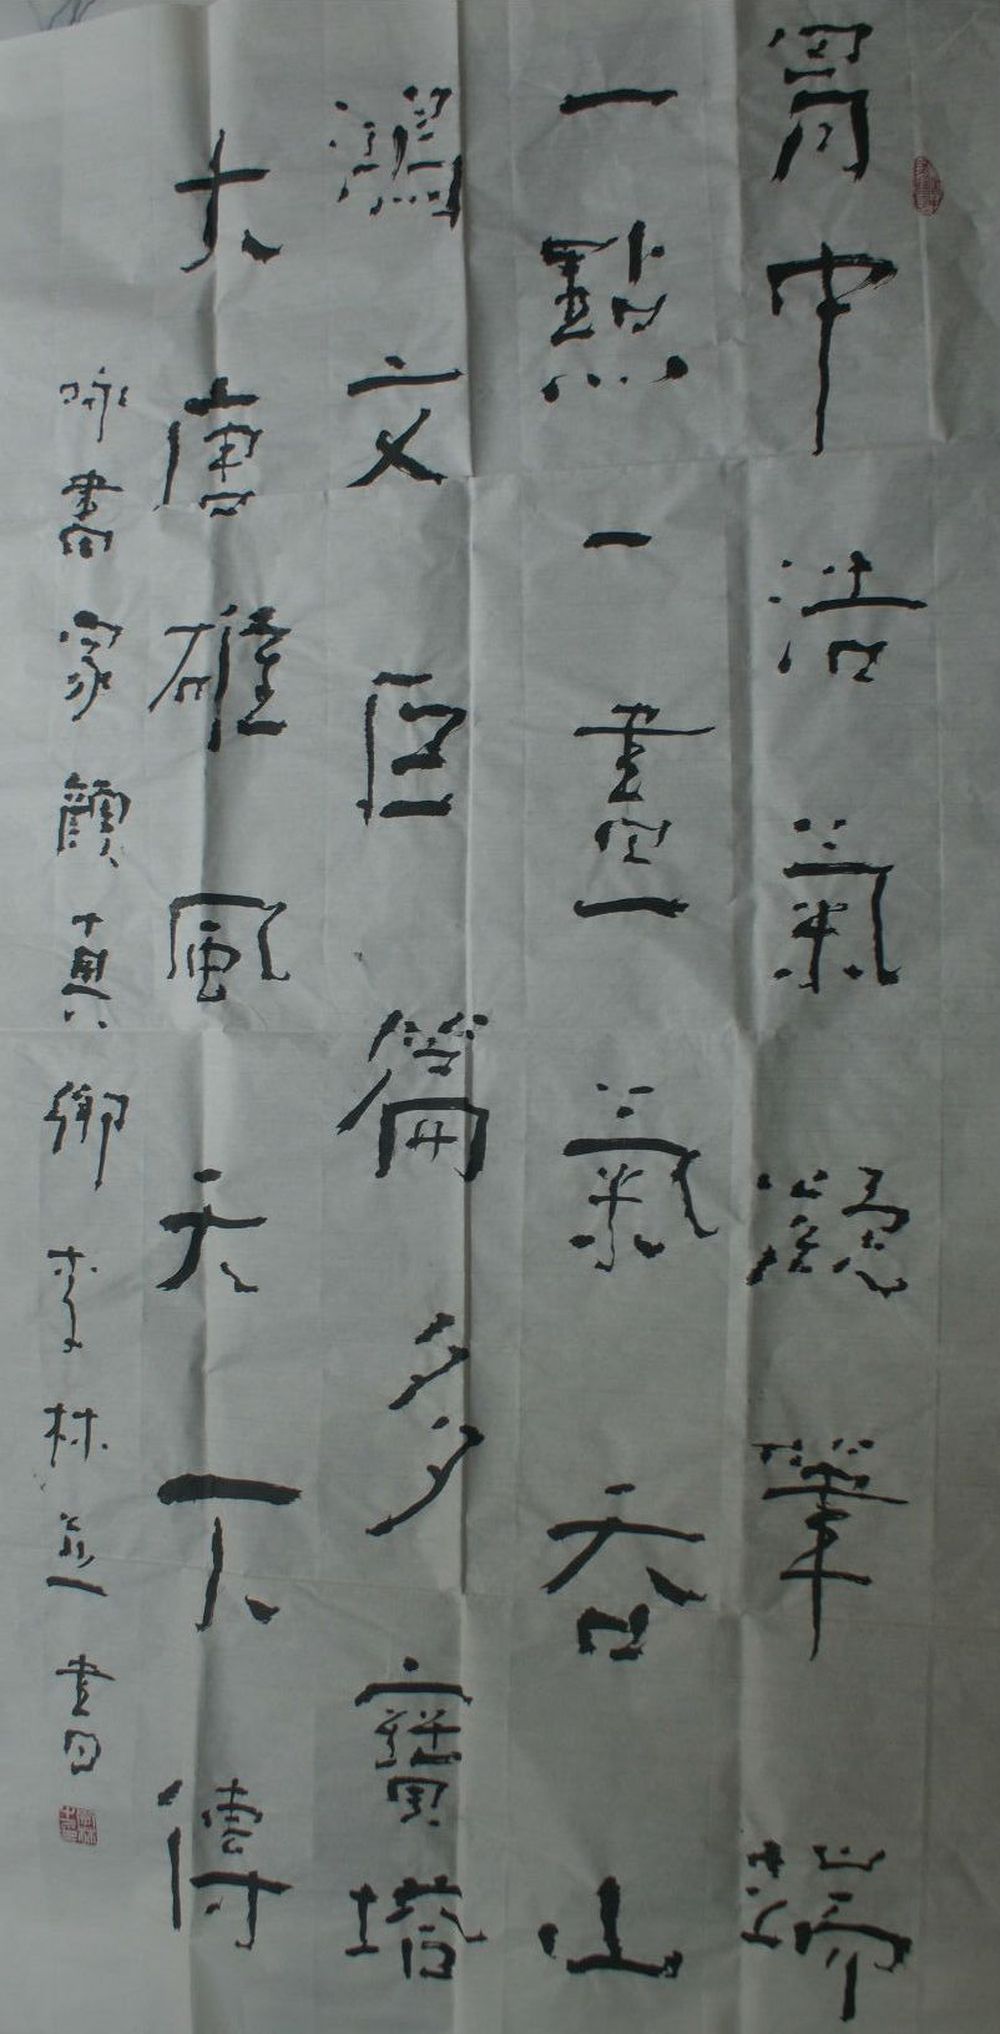 胷中浩氣凝筆端
一點一畫一氣吞山
鴻文巨篇多多寶塔
大唐雄風天下傳
咏書家顏真卿李林並書